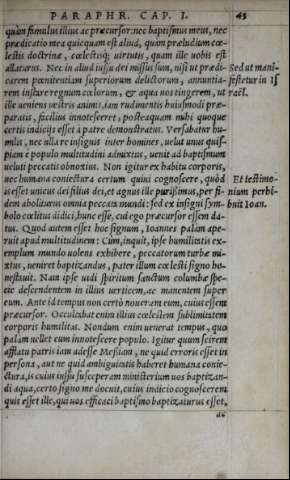 PARAPHR. CAP. I. 45
quàm famulus illius ac præcursor: nec baptismus meus, nec
prædicatio mea quicquam est aliud, quàm præludium cœ-
lestis doctrinæ, cœlestisq́; uirtutis, quam ille uobis est
allaturus. Nec in aliud iussu dei missus sum, nisi ut prædi-
carem pœnitentiam superiorum delictorum, annuntia-
rem instare regnum cœlorum, & aqua uos tingerem, ut
ille ueniens uestris animis, iam rudimentis huiusmodi præ-
paratis, facilius innotesceret, posteaquam mihi quoque
certis indicijs esset à patre demonstratus. Versabatur hu-
milis, nec ulla re insignis inter homines, uelut unus quis-
piam è populo multitudini admixtus, uenit ad baptismum
ueluti peccatis obnoxius. Non igitur ex habitu corporis,
nec humana coniectura certum quiui cognoscere, quòd
is esset unicus dei filius dei, et agnus ille purissimus, per fi-
dem aboliturus omnia peccata mundi: sed ex insigni sym-
bolo cœlitus didici, hunc esse, cui ego præcursor essem da-
tus. Quod autem esset hoc signum, Ioannes palam ape-
ruit apud multitudinem: Cum, inquit, ipse humilitatis ex-
emplum mundo uolens exhibere, peccatorum turbæ mi-
xtus, ueniret baptizandus, pater illum cœlesti signo ho-
nestauit. Nam ipse uidi spiritum sanctum columbæ spe-
cie descendentem in illius uerticem, ac manentem super
eum. Ante id tempus non certò noueram eum, cuius essem
præcursor. Occulebat enim illius cœlestem sublimitatem
corporis humilitas. Nondum enim uenerat tempus, quo
palàm uellet eum innotescere populo. Igitur quum scirem
afflatu patris iam adesse Messiam, ne quid erroris esset in
persona, aut ne quid ambiguitatis haberet humana conie-
ctura, is cuius iussu susceperam ministerium uos baptizan-
di aqua, certo signo me docuit, cuius indicio cognoscerem
quis esset ille, qui uos efficaci baptismo baptizaturus esset,
Sed ut mani-
festetur in Is
raël.
Et testimo-
nium perhi-
buit Ioan.